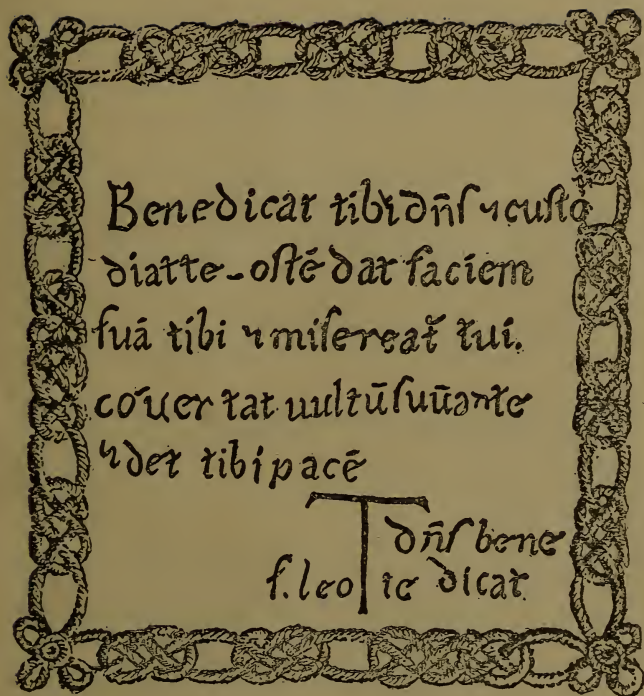 Benedicat tibi dñſ ⁊ cuſto
diatte - oſtēdat faciem
ſuā tibi ⁊ miſereat̃ tui.
cōuertat uultū ſuū ante
⁊ det tibi pacē
T dñſ bene
f. leo te dicat